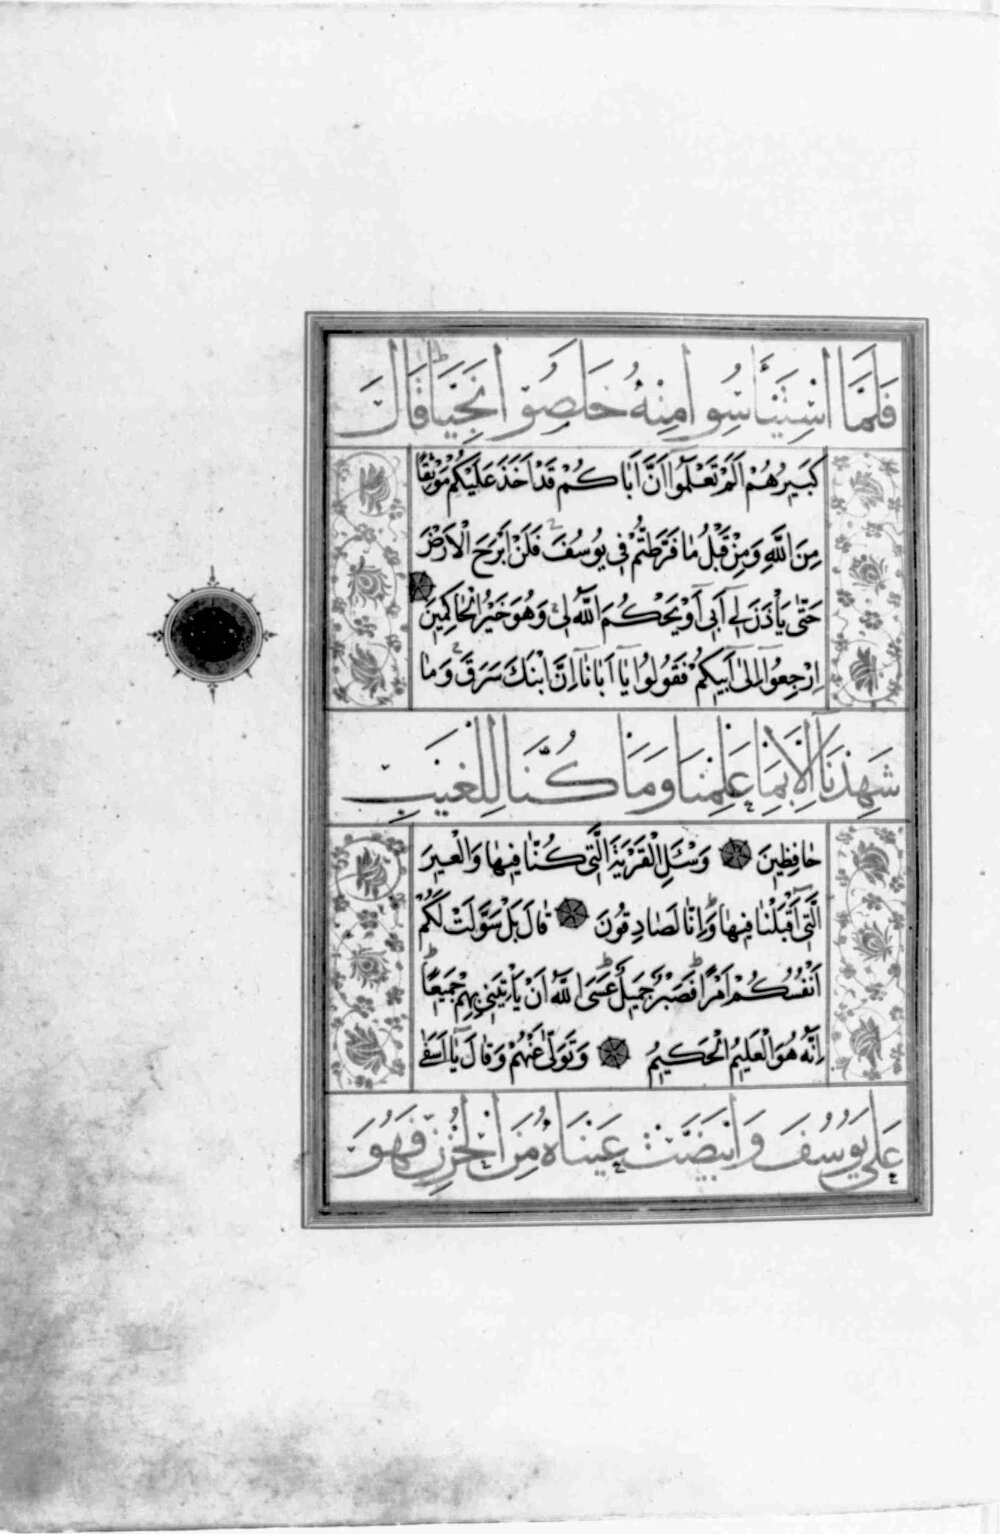 فَلَمَّا اسْتَيْأَسُوا مِنْهُ خَلَصُوا نَجِيًّا قَالَ
كَبِيرُهُمْ اَلَمْ تَعْلَمُوا اَنَّ اَبَاكُمْ قَدْ اَخَذَ عَلَيْكُمْ مَوْثِقًا
مِنَ اللّٰهِ وَمِنْ قَبْلُ مَا فَرَّطْتُمْ فِى يُوسُفَ فَلَنْ اَبْرَحَ الْاَرْضَ
حَتّٰى يَأْذَنَ لِى اَبِى اَوْ يَحْكُمَ اللّٰهُ لِى وَهُوَ خَيْرُ الْحَاكِمِينَ
اِرْجِعُوا اِلٰى اَبِيكُمْ فَقُولُوا يَا اَبَانَا اِنَّ ابْنَكَ سَرَقَ وَمَا
شَهِدْنَا اِلَّا بِمَا عَلِمْنَا وَمَا كُنَّا لِلْغَيْبِ
حَافِظِينَ وَسْئَلِ الْقَرْيَةَ الَّتِى كُنَّا فِيهَا وَالْعِيرَ
الَّتِى اَقْبَلْنَا فِيهَا وَاِنَّا لَصَادِقُونَ قَالَ بَلْ سَوَّلَتْ لَكُمْ
اَنْفُسُكُمْ اَمْرًا فَصَبْرٌ جَمِيلٌ عَسَى اللّٰهُ اَنْ يَأْتِيَنِى بِهِمْ جَمِيعًا
اِنَّهُ هُوَ الْعَلِيمُ الْحَكِيمُ وَتَوَلّٰى عَنْهُمْ وَقَالَ يَا اَسَفٰى
عَلٰى يُوسُفَ وَابْيَضَّتْ عَيْنَاهُ مِنَ الْحُزْنِ فَهُوَ